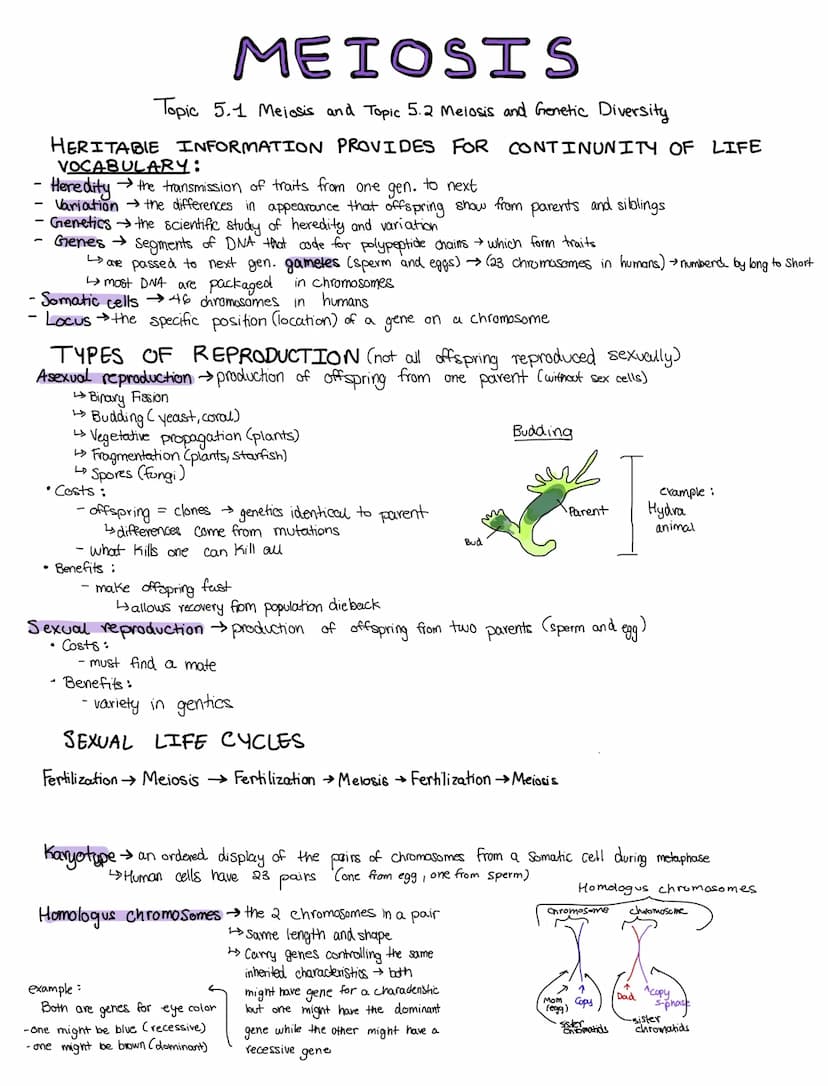 MEIOSIS
Topic 5.1 Meiosis and Topic 5.2 Meiosis and Genetic Diversity
HERITABLE INFORMATION PROVIDES FOR CONTINUNITY OF LIFE
VOCABULARY:
- Heredity → the transmission of traits from one gen. to next
- Variation → the differences in appearance that offspring show from parents and siblings
- Genetics → the scientific study of heredity and variation
- Genes → segments of DNA that code for polypeptide chains → which form traits
↳ are passed to next gen. gameles (sperm and eggs) → (23 chromosomes in humans) → numberd by long to short
↳ most DNA are packaged in chromosomes
- Somatic cells → 46 chromosomes in humans
- Locus → the specific position (location) of a gene on a chromosome
TYPES OF REPRODUCTION (not all offspring reproduced sexually)
Asexual reproduction → production of offspring from one parent (without sex cells)
↳ Binary Fission
↳ Budding (yeast, coral)
↳ Vegetative propagation (plants)
↳ Fragmentation (plants, starfish)
↳ Spores (fungi)
• Costs:
- offspring = clones → genetics identical to parent
↳ differences come from mutations
- what kills one can kill all
• Benefits:
- make offspring fast
↳ allows recovery from population dieback
Budding
Parent
Bud
example:
Hydra
animal
Sexual reproduction → production of offspring from two parents (sperm and egg)
• Costs:
- must find a mate
• Benefits:
- variety in gentics
SEXUAL LIFE CYCLES
Fertilization → Meiosis → Fertilization → Meiosis → Fertilization → Meiosis
Karyotype → an ordered display of the pairs of chromosomes from a somatic cell during metaphase
↳ Human cells have 23 pairs (one from egg, one from sperm)
Homologus chromosomes → the 2 chromosomes in a pair
↳ Same length and shape
↳ Carry genes controlling the same
inherited characteristics → both
might have gene for a characteristic
but one might have the dominant
gene while the other might have a
recessive gene
example:
Both are genes for eye color
- one might be blue (recessive)
- one might be brown (dominant)
Homologus chromosomes
chromosome chromosome
Mom
(egg)
Copy
sister
chromatids
Dad
copy
s-phase
sister
chromatids